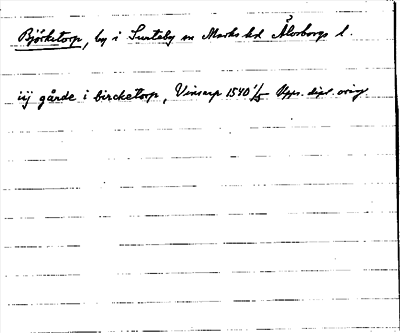 Björketorp, by i Surteby sn Marks hd Älvsborgs l.
iij gårde i bircketorp, Vinsarp 1540 1/5 Upps. dipl. orig.